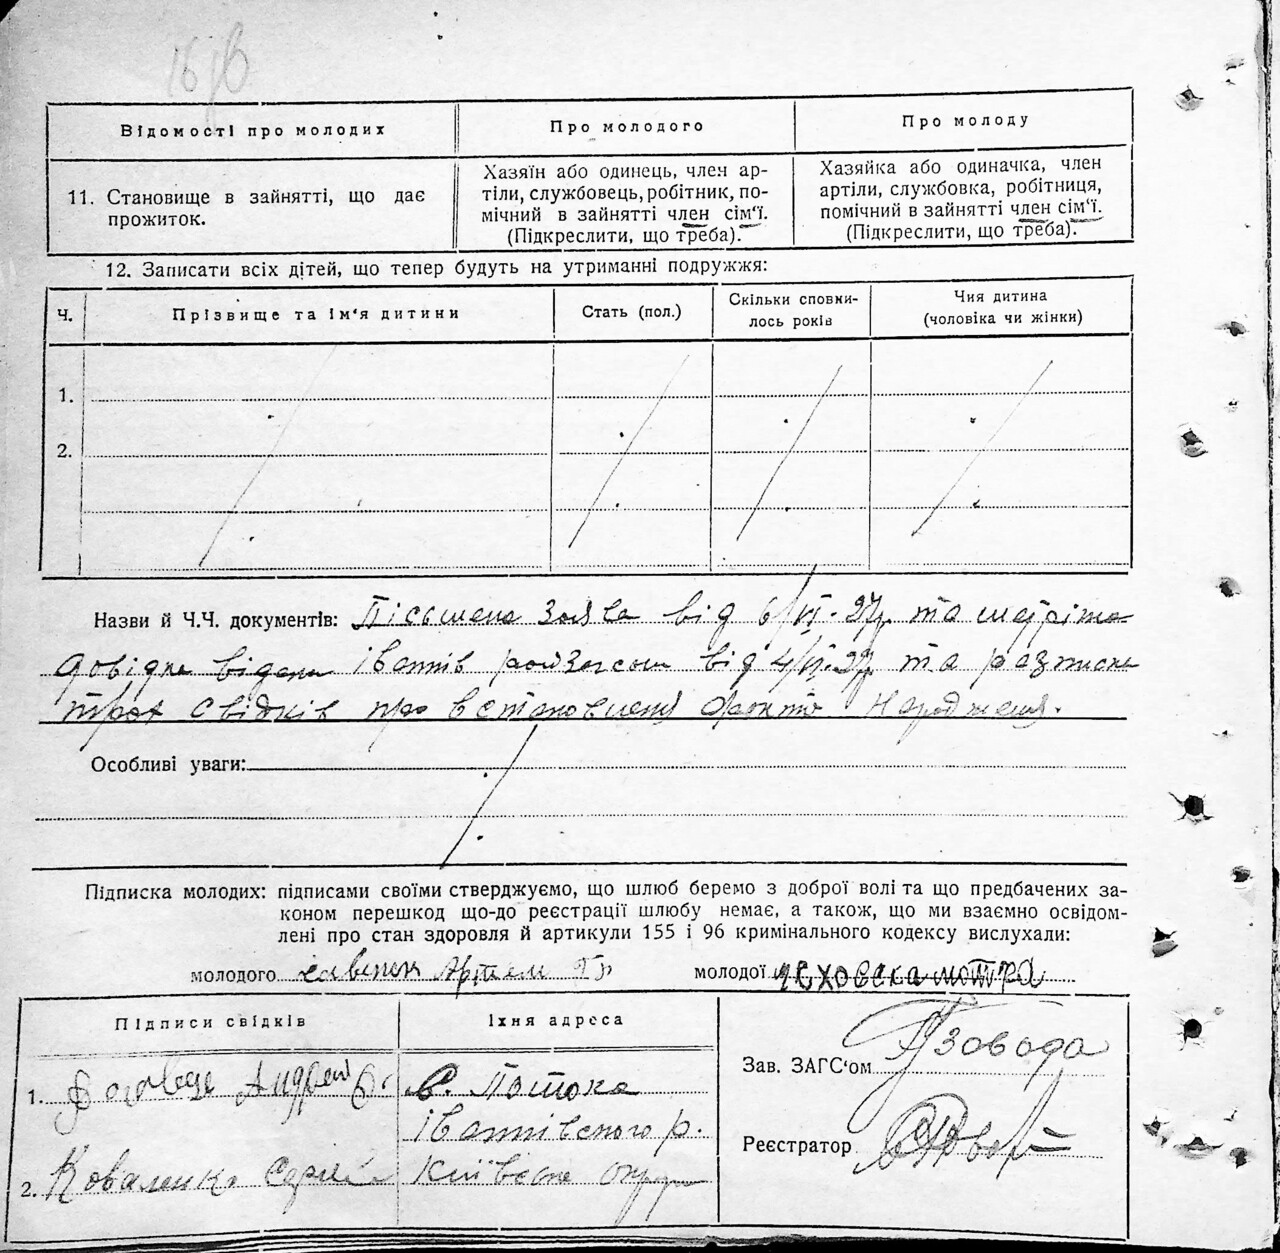 Відомості про молодих
Про молодого
Про молоду
11. Становище в зайнятті, що дає
прожиток.
Хазяїн або одинець, член ар-
тіли, службовець, робітник, по-
мічний в зайнятті член сім'ї.
(Підкреслити, що треба).
Хазяйка або одиначка, член
артіли, службовка, робітниця,
помічний в зайнятті член сім'ї.
(Підкреслити, що треба).
12. Записати всіх дітей, що тепер будуть на утриманні подружжя:
Ч.
Прізвище та ім'я дитини
Стать (пол.)
Скільки сповни-
лось років
Чия дитина
(чоловіка чи жінки)
1.
2.
Назви й Ч.Ч. документів: Пісьмена заява від 6/VI-27р. та
довідка від 4/VI-27р. та
трох свідків про встановленя факта народженя.
Особливі уваги:
Підписка молодих: підписами своїми стверджуємо, що шлюб беремо з доброї волі та що предбачених за-
коном перешкод що-до реєстрації шлюбу немає, а також, що ми взаємно освідом-
лені про стан здоровля й артикули 155 і 96 кримінального кодексу вислухали:
молодого Артем
молодої мотра
Підписи свідків
Їхня адреса
1. Андрей
с. Потока
р.
2. Коваленко Сергій
Київске
Зав. ЗАГС'ом
Реєстратор